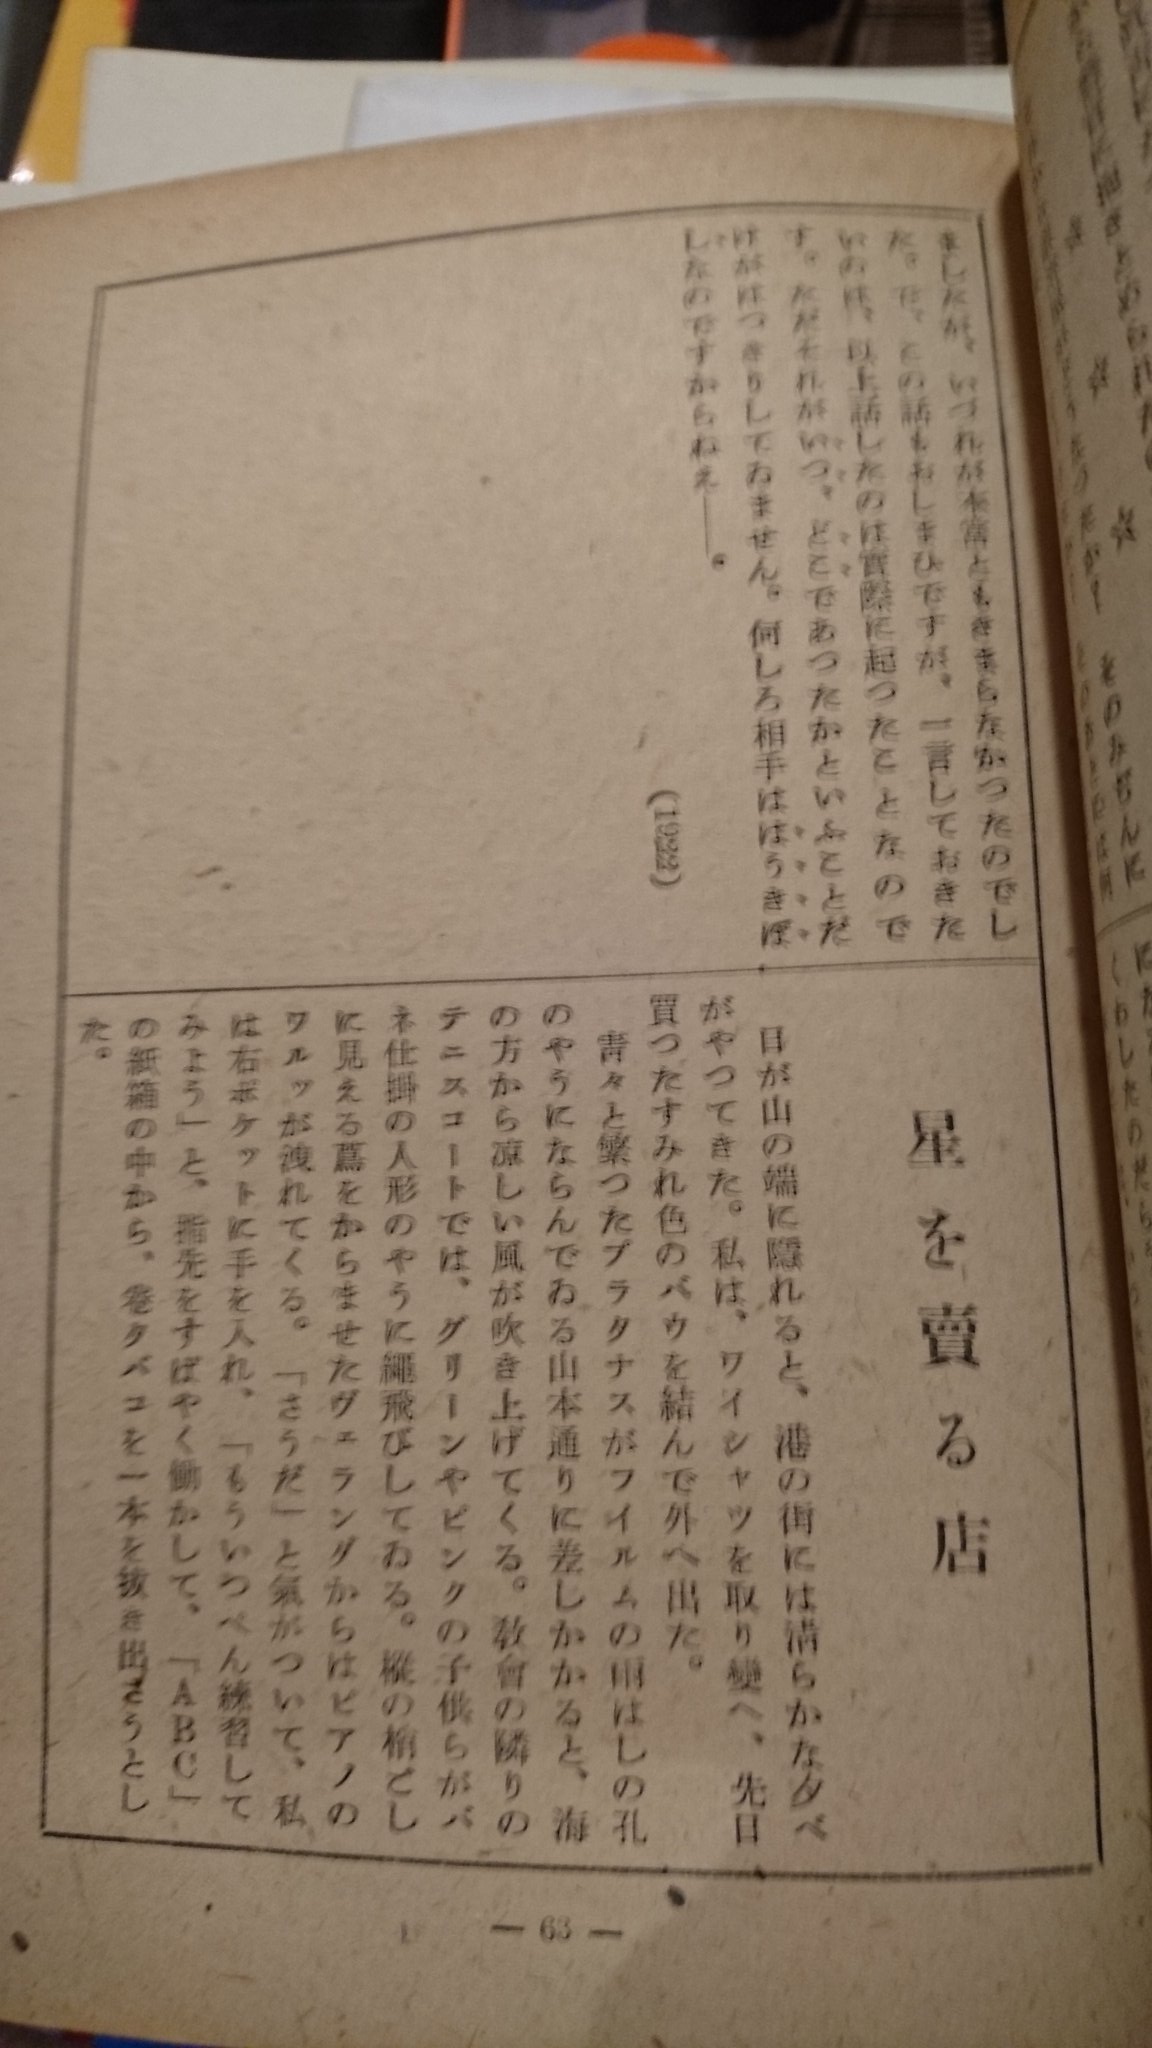 ましたが、いづれが本當ともきまらなかつたのでし
た。で、この話もおしまひですが、一言しておきた
いのは、以上話したのは實際に起つたことなので
す。ただそれがいつ、どこであつたかといふことだ
けがはつきりしてゐません。何しろ相手ははうきぼ
したのですからねえ——。
(1922)
星を賣る店
日が山の端に隱れると、港の街には淸らかな夕べ
がやつてきた。私は、ワイシャツを取り變へ、先日
買つたすみれ色のバウを結んで外へ出た。
靑々と繁つたプラタナスがフイルムの雨はしの孔
のやうにならんでゐる山本通りに差しかかると、海
の方から凉しい風が吹き上げてくる。敎會の隣りの
テニスコートでは、グリーンやピンクの子供らがバ
ネ仕掛の人形のやうに繩飛びしてゐる。樅の梢ごし
に見える蔦をからませたヴェランダからはピアノの
ワルツが洩れてくる。「さうだ」と氣がついて、私
は右ポケットに手を入れ、「もういつぺん練習して
みよう」と、指先をすばやく働かして、「ABC」
の紙箱の中から、卷タバコを一本を拔き出さうとし
た。
— 63 —